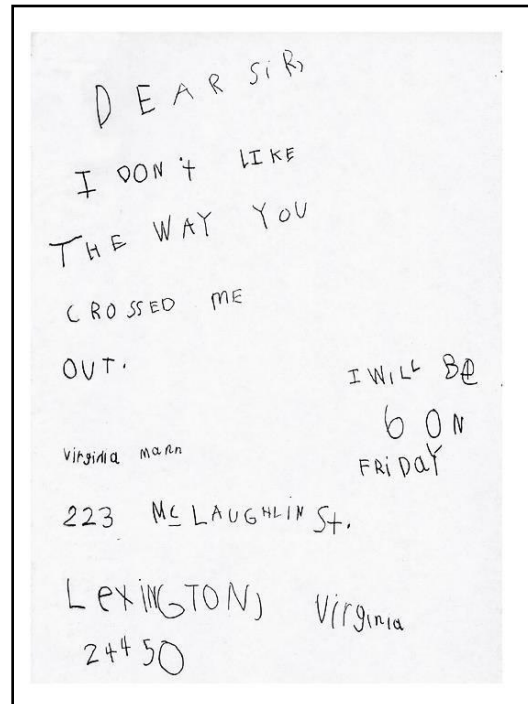 DEAR SiR,
I DON't LIKE
THE WAY YOU
CROSSED ME
OUT.
I WILL Be
6 ON
FRiDaY
Virginia mann
223 Mc LAUGHLIN St.
LexiNGTON, Virginia
24450